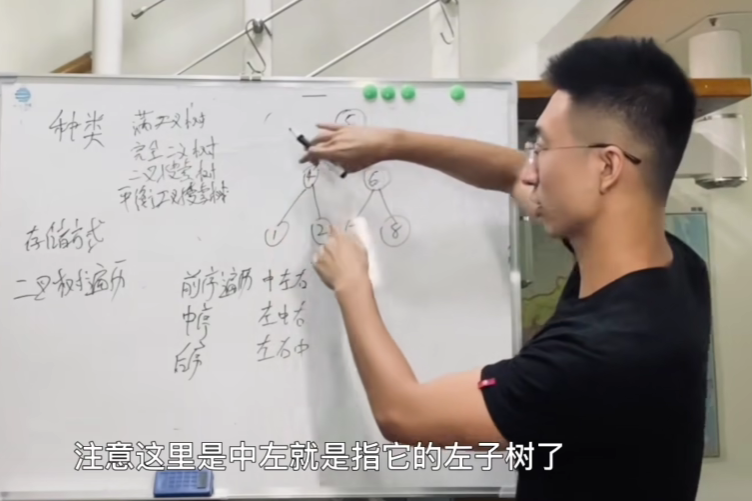 种类
满二叉树
完全二叉树
二叉搜索树
平衡二叉搜索树
存储方式
二叉树遍历
前序遍历 中左右
中序 左中右
后序 左右中
5
4 6
1 2 8
注意这里是中左就是指它的左子树了